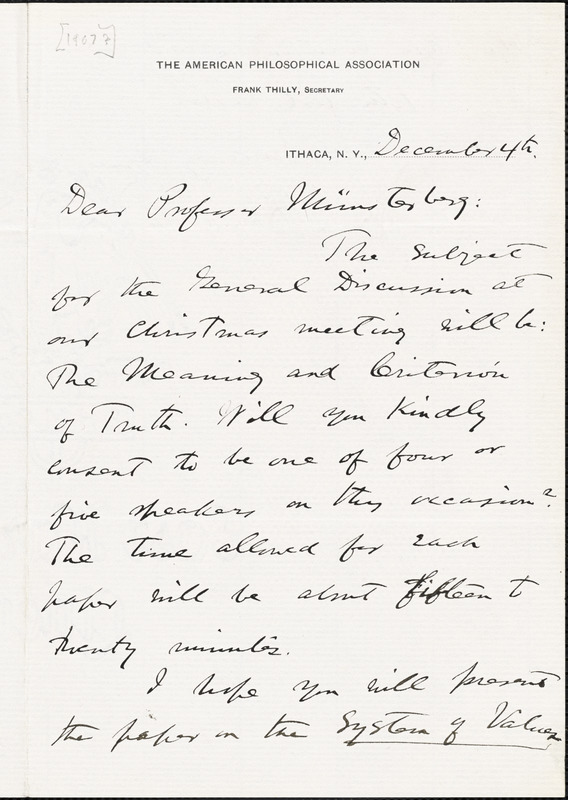 [1907?]
THE AMERICAN PHILOSOPHICAL ASSOCIATION
FRANK THILLY, SECRETARY
ITHACA, N. Y., December 4th.
Dear Professor Münsterberg:
The subject
for the General Discussion at
our Christmas meeting will be:
The Meaning and Criterion
of Truth. Will you kindly
consent to be one of four or
five speakers on this occasion?
The time allowed for each
paper will be about fifteen to
twenty minutes.
I hope you will present
the paper on the System of Values